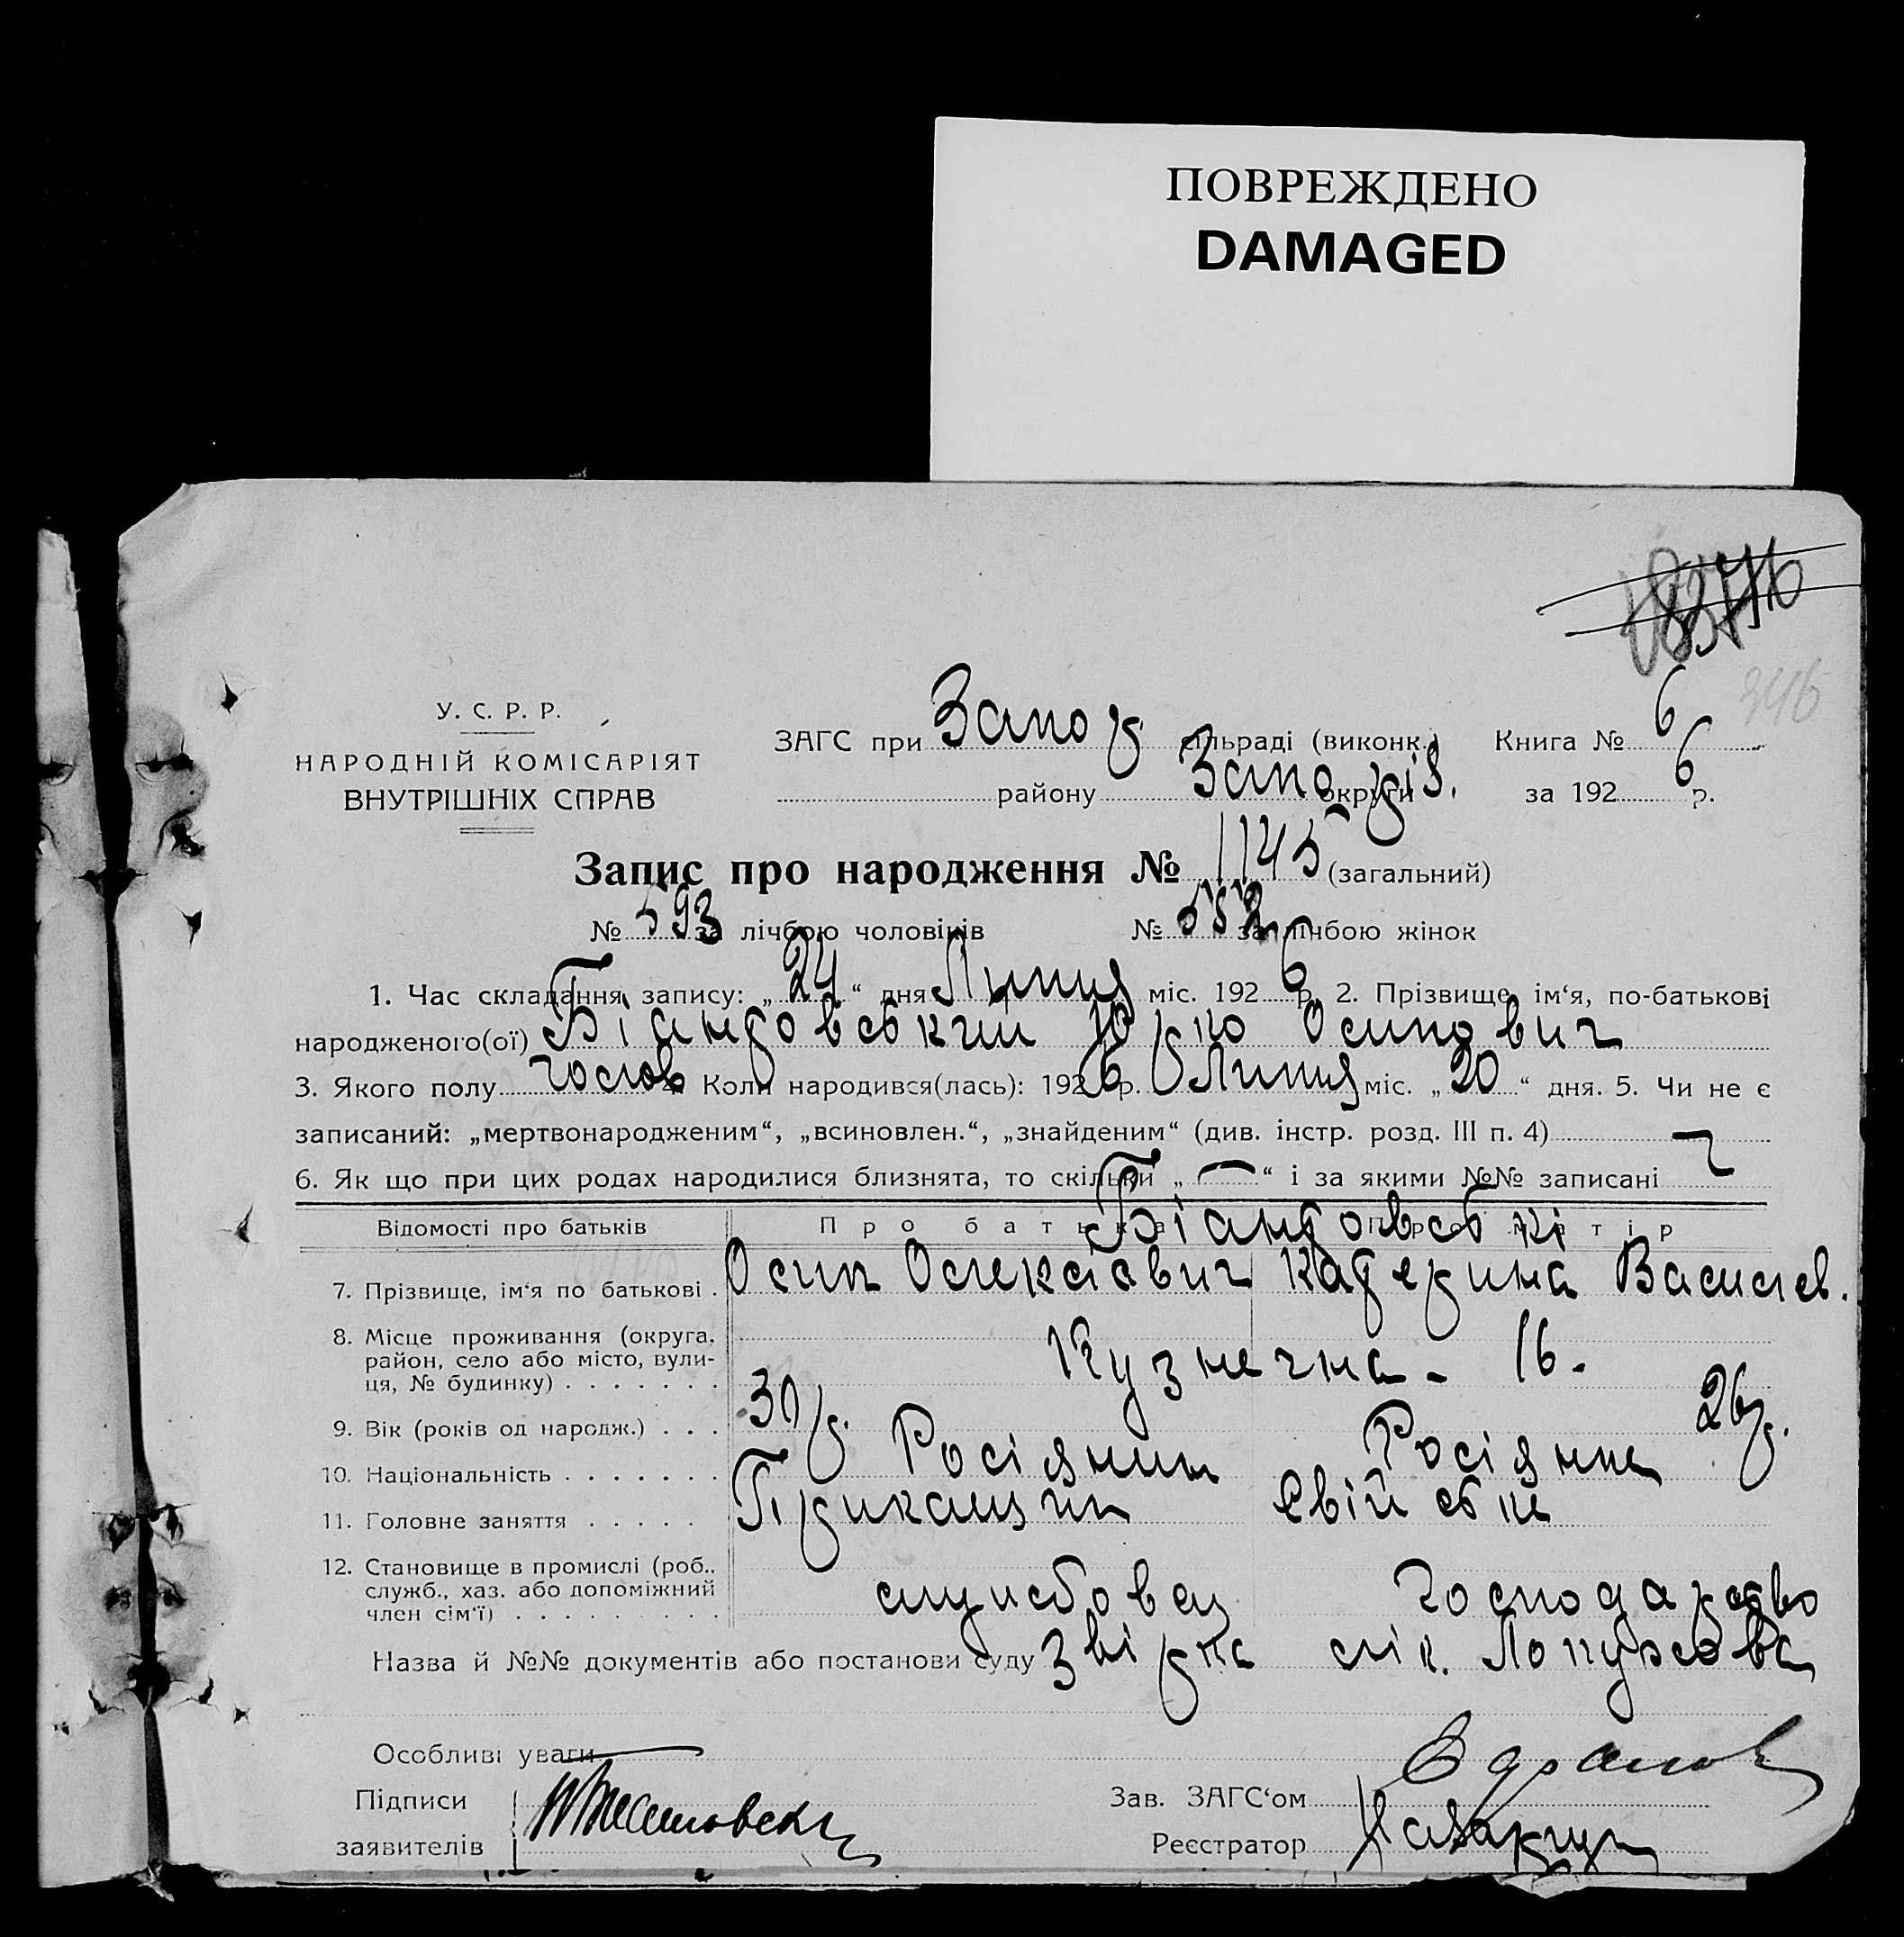 ПОВРЕЖДЕНО
DAMAGED
346
У. С. Р. Р.
НАРОДНІЙ КОМІСАРІЯТ
ВНУТРІШНІХ СПРАВ
ЗАГС при Запор сільраді (виконк.) Книга № 6
району Запоріз. округи за 1926 р.
Запис про народження № 1145 (загальний)
№ 593 за лічбою чоловіків № 552 за лічбою жінок
1. Час складання запису: „24“ дня Липня міс. 1926 р. 2. Прізвище, ім‘я, по-батькові
народженого(ої) Біантовський Юрко Осипович
3. Якого полу чолов 4. Коли народився(лась): 1926 р. Липня міс. „20“ дня. 5. Чи не є
записаний: „мертвонародженим“, „всиновлен.“, „знайденим“ (див. інстр. розд. III п. 4)
6. Як що при цих родах народилися близнята, то скільки „—“ і за якими №№ записані
Відомості про батьків Про батька Про матір
Біантовські
7. Прізвище, ім‘я по батькові . Осип Олексієвич Катерина Василів.
8. Місце проживання (округа, район, село або місто, вулиця, № будинку) . . . . . . . Кузнечна - 16.
9. Вік (років од народж.) . . . 30 р. 26 р.
10. Національність . . . . . . . Росіянин Росіянка
11. Головне заняття . . . . . Прикащик Свійське
12. Становище в промислі (роб., служб., хаз. або допоміжний член сім‘ї) . . . . . . . . . службовец господарство
Назва й №№ документів або постанови суду Звірка лік.
Особливі уваги
Підписи
заявителів
Зав. ЗАГС‘ом
Реєстратор